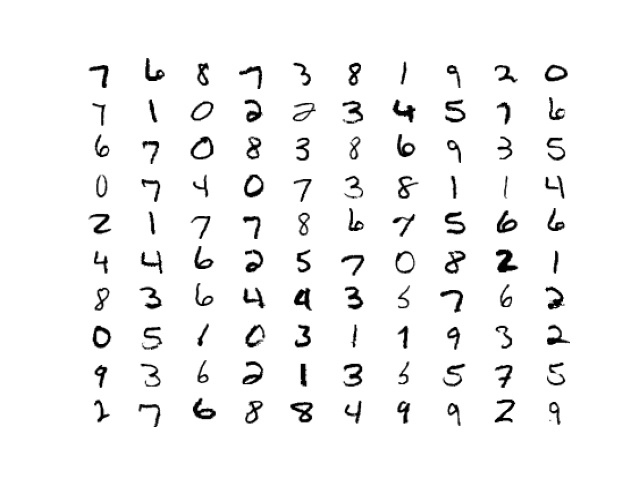 7 6 8 7 3 8 1 9 2 0
7 1 0 2 2 3 4 5 7 6
6 7 0 8 3 8 6 9 3 5
0 7 4 0 7 3 8 1 1 4
2 1 7 7 8 6 7 5 6 6
4 4 6 2 5 7 0 8 2 1
8 3 6 4 4 3 5 7 6 2
0 5 1 0 3 1 1 9 3 2
9 3 6 2 1 3 5 5 7 5
2 7 6 8 8 4 9 9 2 9